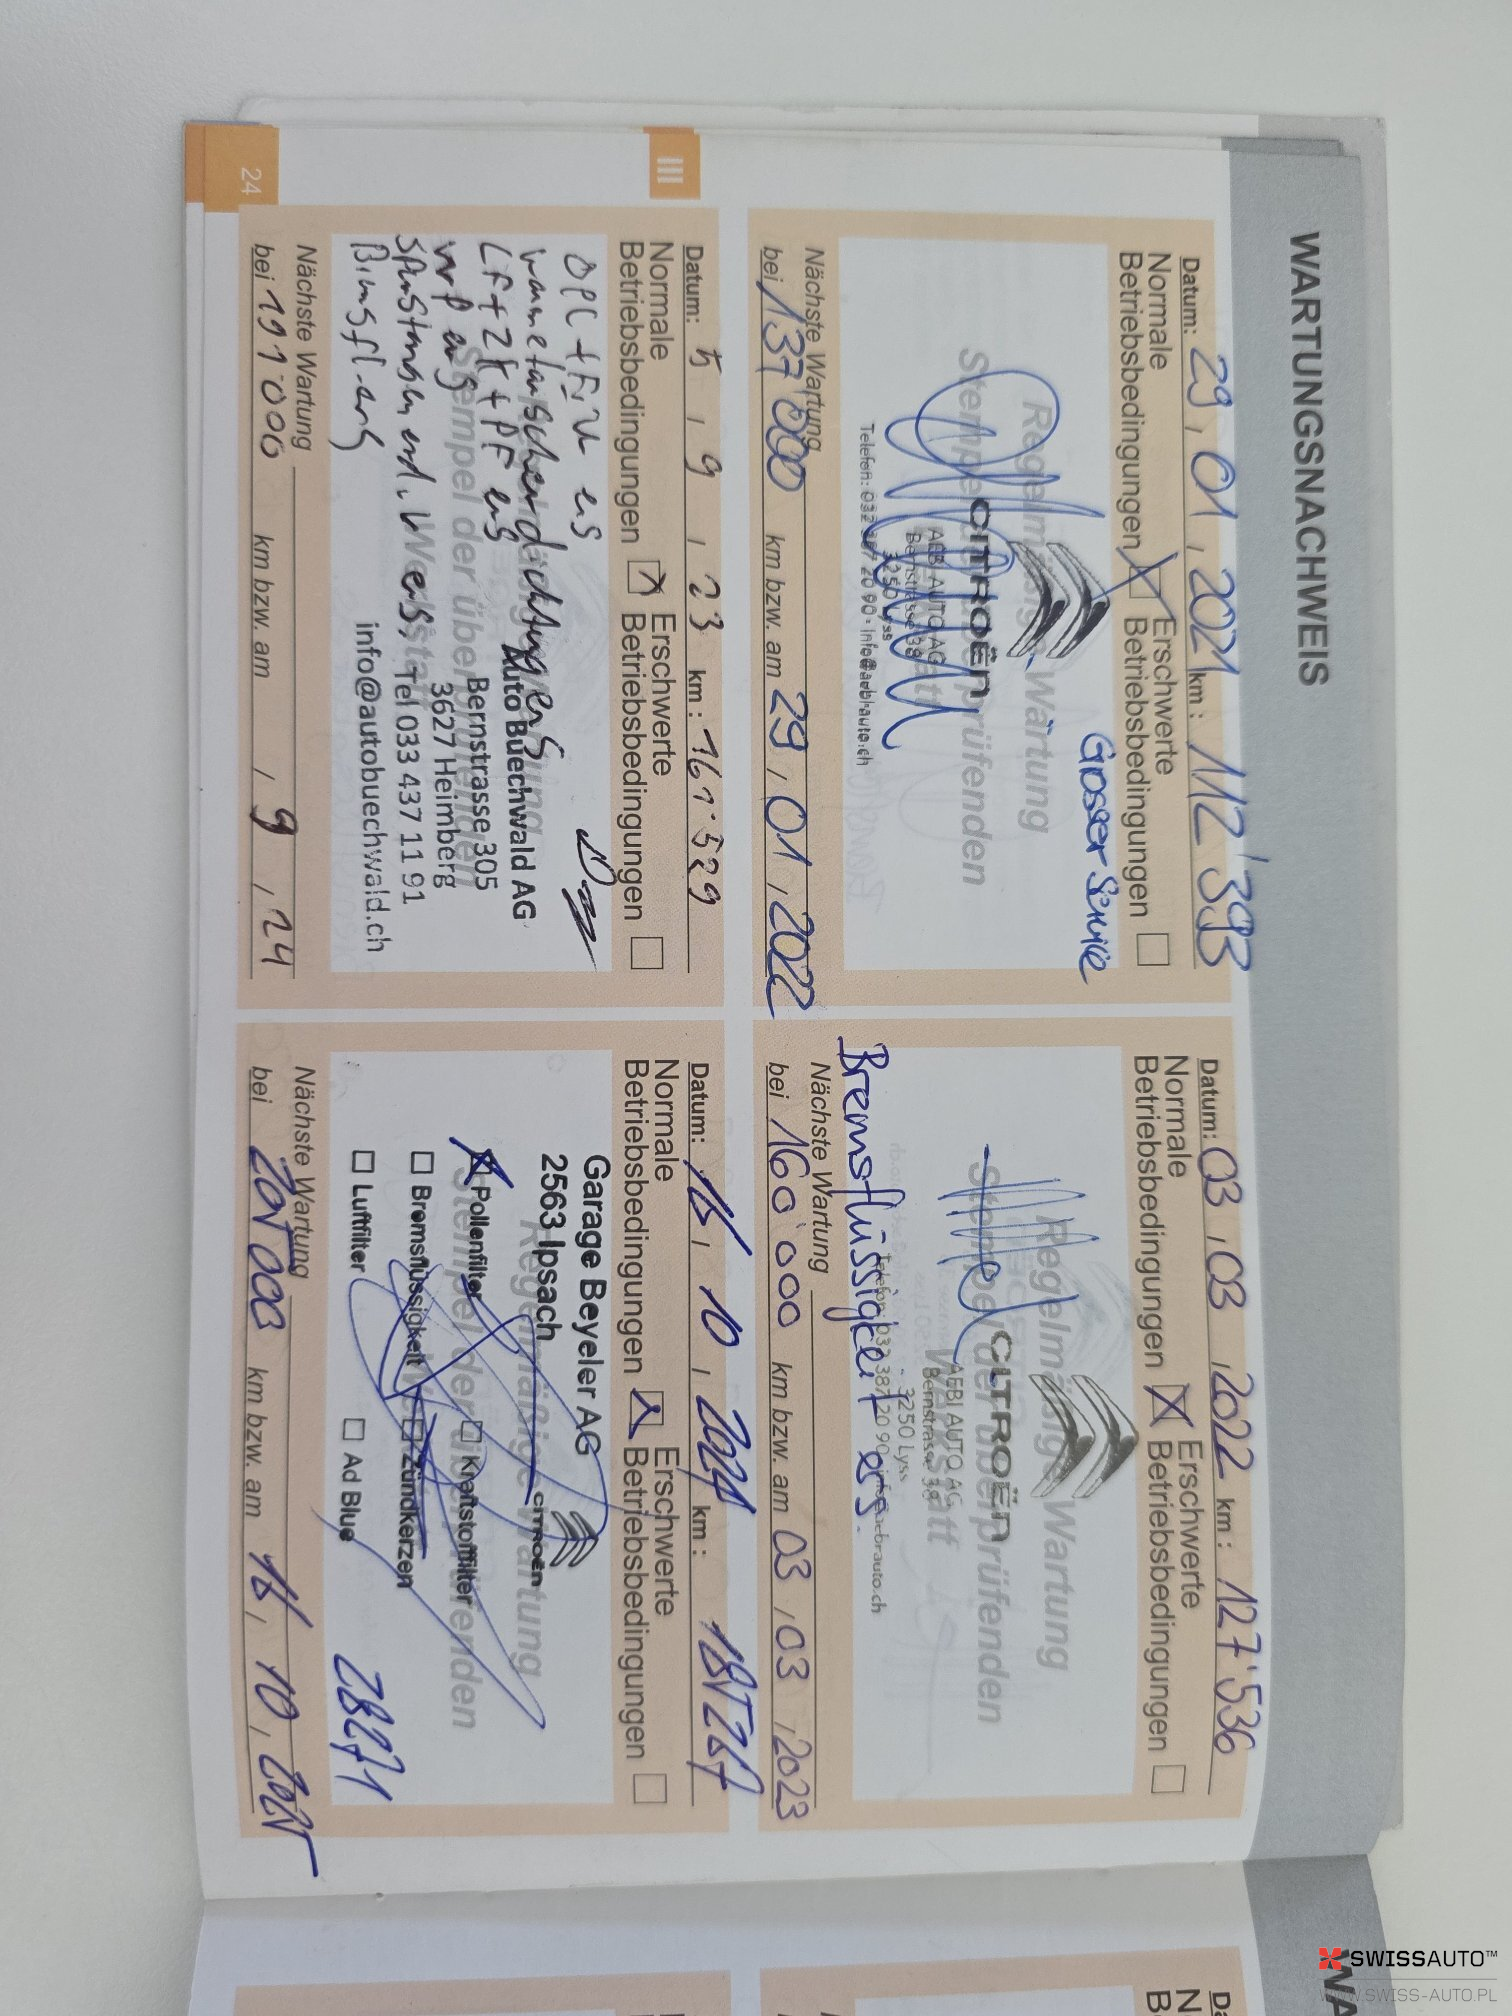 WARTUNGSNACHWEIS
Datum: 29 , 01 , 2021 km : 112'393
Normale Betriebsbedingungen
Erschwerte Betriebsbedingungen
Grosser Service
Regelmäßige Wartung
Stempel der überprüfenden
CITROËN
AEBI AUTO AG
Bernstrasse 38
3250 Lyss
Telefon: 032 387 20 90 - info@aebiauto.ch
Nächste Wartung
bei 137'000 km bzw. am 29 , 01 , 2022
Datum: 03 , 03 , 2022 km : 127'536
Normale Betriebsbedingungen
Erschwerte Betriebsbedingungen
Regelmäßige Wartung
Stempel der überprüfenden
CITROËN
AEBI AUTO AG
Bernstrasse 38
3250 Lyss
Telefon: 032 387 20 90 - info@aebiauto.ch
Bremsflüssigkeit ers.
Nächste Wartung
bei 160'000 km bzw. am 03 , 03 , 2023
III
Datum: 5 , 9 , 23 km : 161'529
Normale Betriebsbedingungen
Erschwerte Betriebsbedingungen
Wärmetauscherdichtung ers
LF + + PF ers
Spurstangen
Stempel der überprüfenden
Auto Buechwald AG
Bernstrasse 305
3627 Heimberg
Tel 033 437 11 91
info@autobuechwald.ch
Nächste Wartung
bei 191'000 km bzw. am , 9 , 24
Datum: 16 , 10 , 2024 km :
Normale Betriebsbedingungen
Erschwerte Betriebsbedingungen
Garage Beyeler AG
2563 Ipsach
CITROËN
Regelmäßige Wartung
Stempel der überprüfenden
Pollenfilter
Kraftstofffilter
Bremsflüssigkeit
Zündkerzen
Luftfilter
Ad Blue
28271
Nächste Wartung
bei km bzw. am 16 , 10 , 2025
24
SWISSAUTO™
WWW.SWISS-AUTO.PL